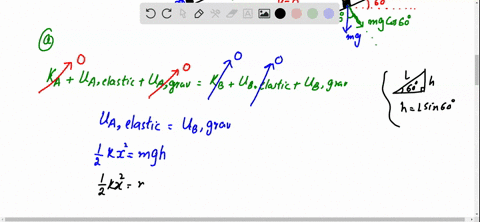 60°
mg cos 60°
mg
(a)
0 0 0 0
K_A + U_A, elastic + U_A, grav = K_B + U_B, elastic + U_B, grav
L h
60°
h = L sin 60°
U_A, elastic = U_B, grav
1/2 kx² = mgh
1/2 kx² = r